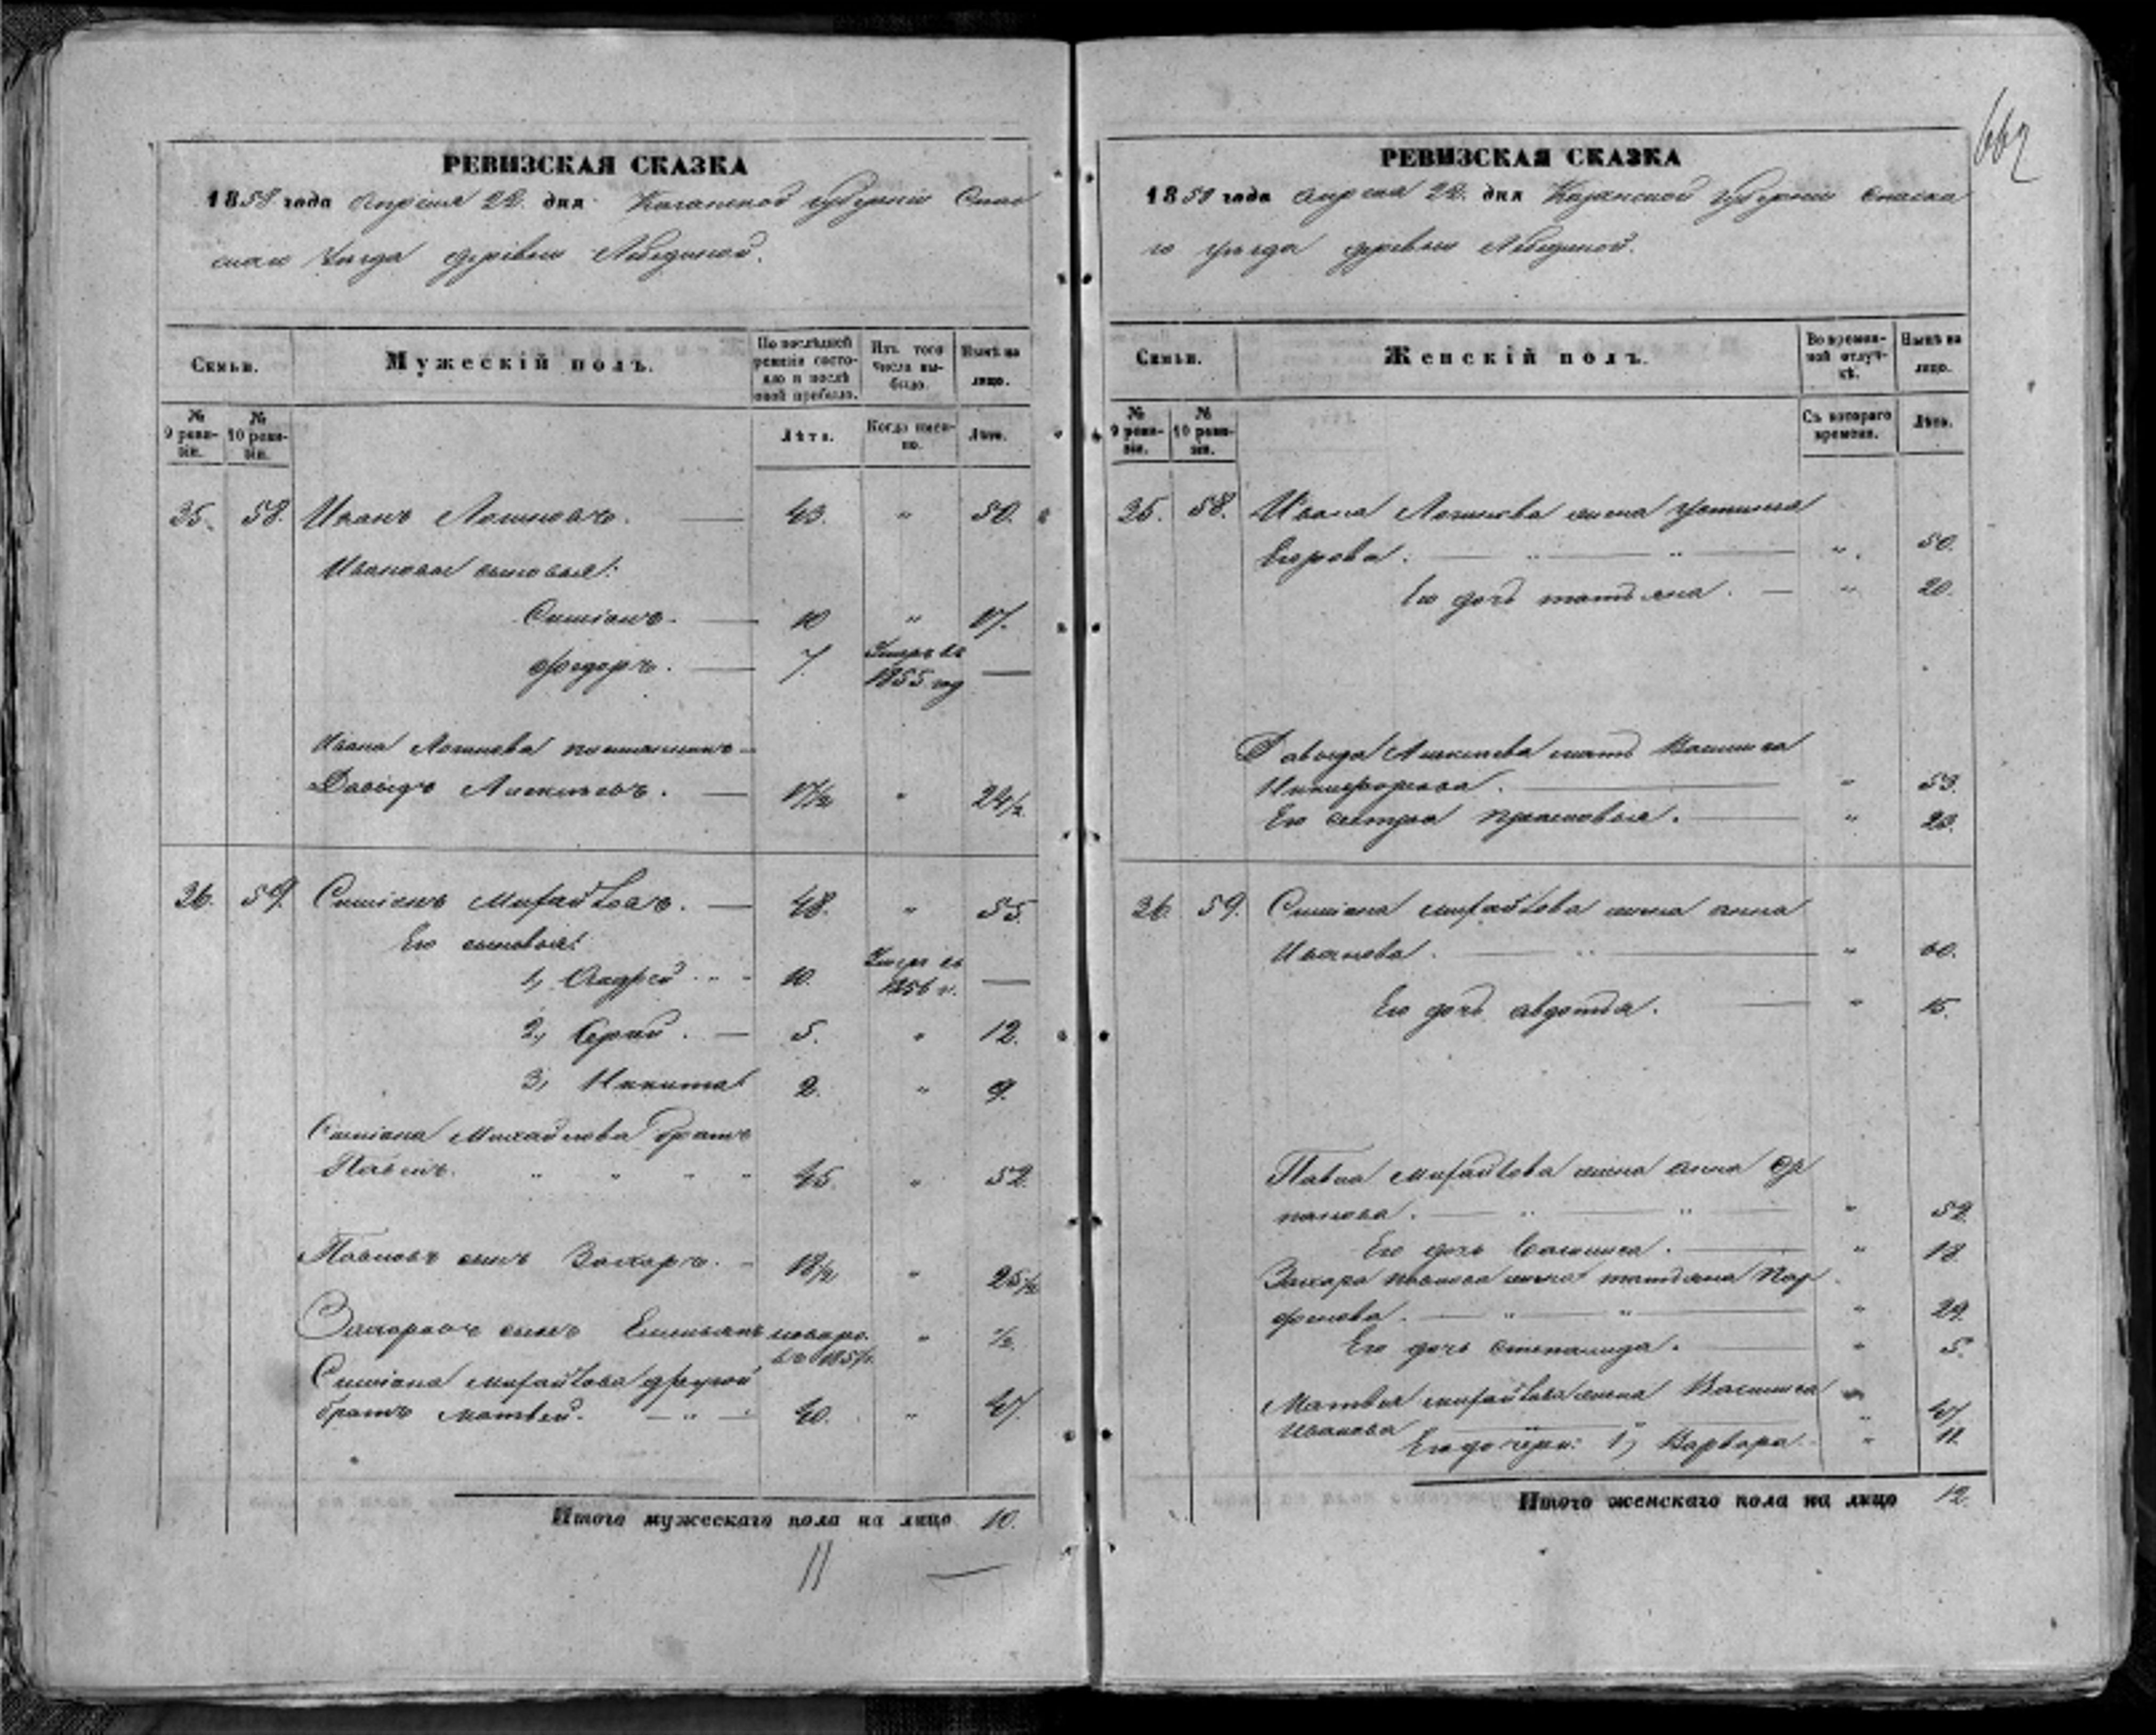 662
РЕВИЗСКАЯ СКАЗКА
1858 года Апреля 22 дня Казанской губернии Спас
скаго уезда деревни Лебединой.
Семьи.
Мужескій полъ.
По послѣдней ревизіи состояло и послѣ оной прибыло.
Изъ того числа выбыло.
Нынѣ на лицо.
№ 9 ревизіи.
№ 10 ревизіи.
Лѣта.
Когда именно.
Лѣта.
35. 58. Иванъ Логиновъ. 43. " 50.
Ивановы сыновья:
Симіонъ. 10 " 17.
Федоръ. 7. Умеръ въ
1855 году —
Ивана Логинова племянникъ
Давыдъ Алексѣевъ. 17½ " 24½
36. 59. Симіонъ Михайловъ. 48. " 55.
Его сыновья:
1, Андрей 10. Умеръ въ
1856 г. —
2, Сергѣй. 5. " 12.
3, Никита 2. " 9.
Симіона Михайлова братъ
Павелъ. 45. " 52.
Павловъ сынъ Захаръ. 18½ " 25½
Захаровъ сынъ Емельянъ новоро.
въ 1857 г. " ½.
Симіона Михайлова другой
братъ Матвѣй. 40. " 47.
Итого мужескаго пола на лицо 10.
11
РЕВИЗСКАЯ СКАЗКА
1858 года Апреля 22. дня Казанской Губерніи Спаска
го уѣзда деревни Лебединой.
Семьи.
Женскій полъ.
Во временной отлучкѣ.
Нынѣ на лицо.
№ 9 ревизіи.
№ 10 ревизіи.
Съ котораго времени.
Лѣта.
35. 58. Ивана Логинова жена Устинья
Егорова. " 50.
Его дочь Татьяна. " 20.
Давыда Алексѣева мать Василиса
Никифорова. " 53.
Его сестра Прасковья. " 23.
36. 59. Симіона Михайлова жена Анна
Иванова. " 60.
Его дочь Авдотья. " 15.
Павла Михайлова жена Анна
" 52.
Его дочь Василиса. " 18.
Захара Павлова жена Татьяна Пар
фенова. " 29.
Его дочь Степанида. " 5.
Матвѣя Михайлова жена Василиса
Иванова " 47
Его дочери: 1, Варвара. " 11.
Итого женскаго пола на лицо 12.